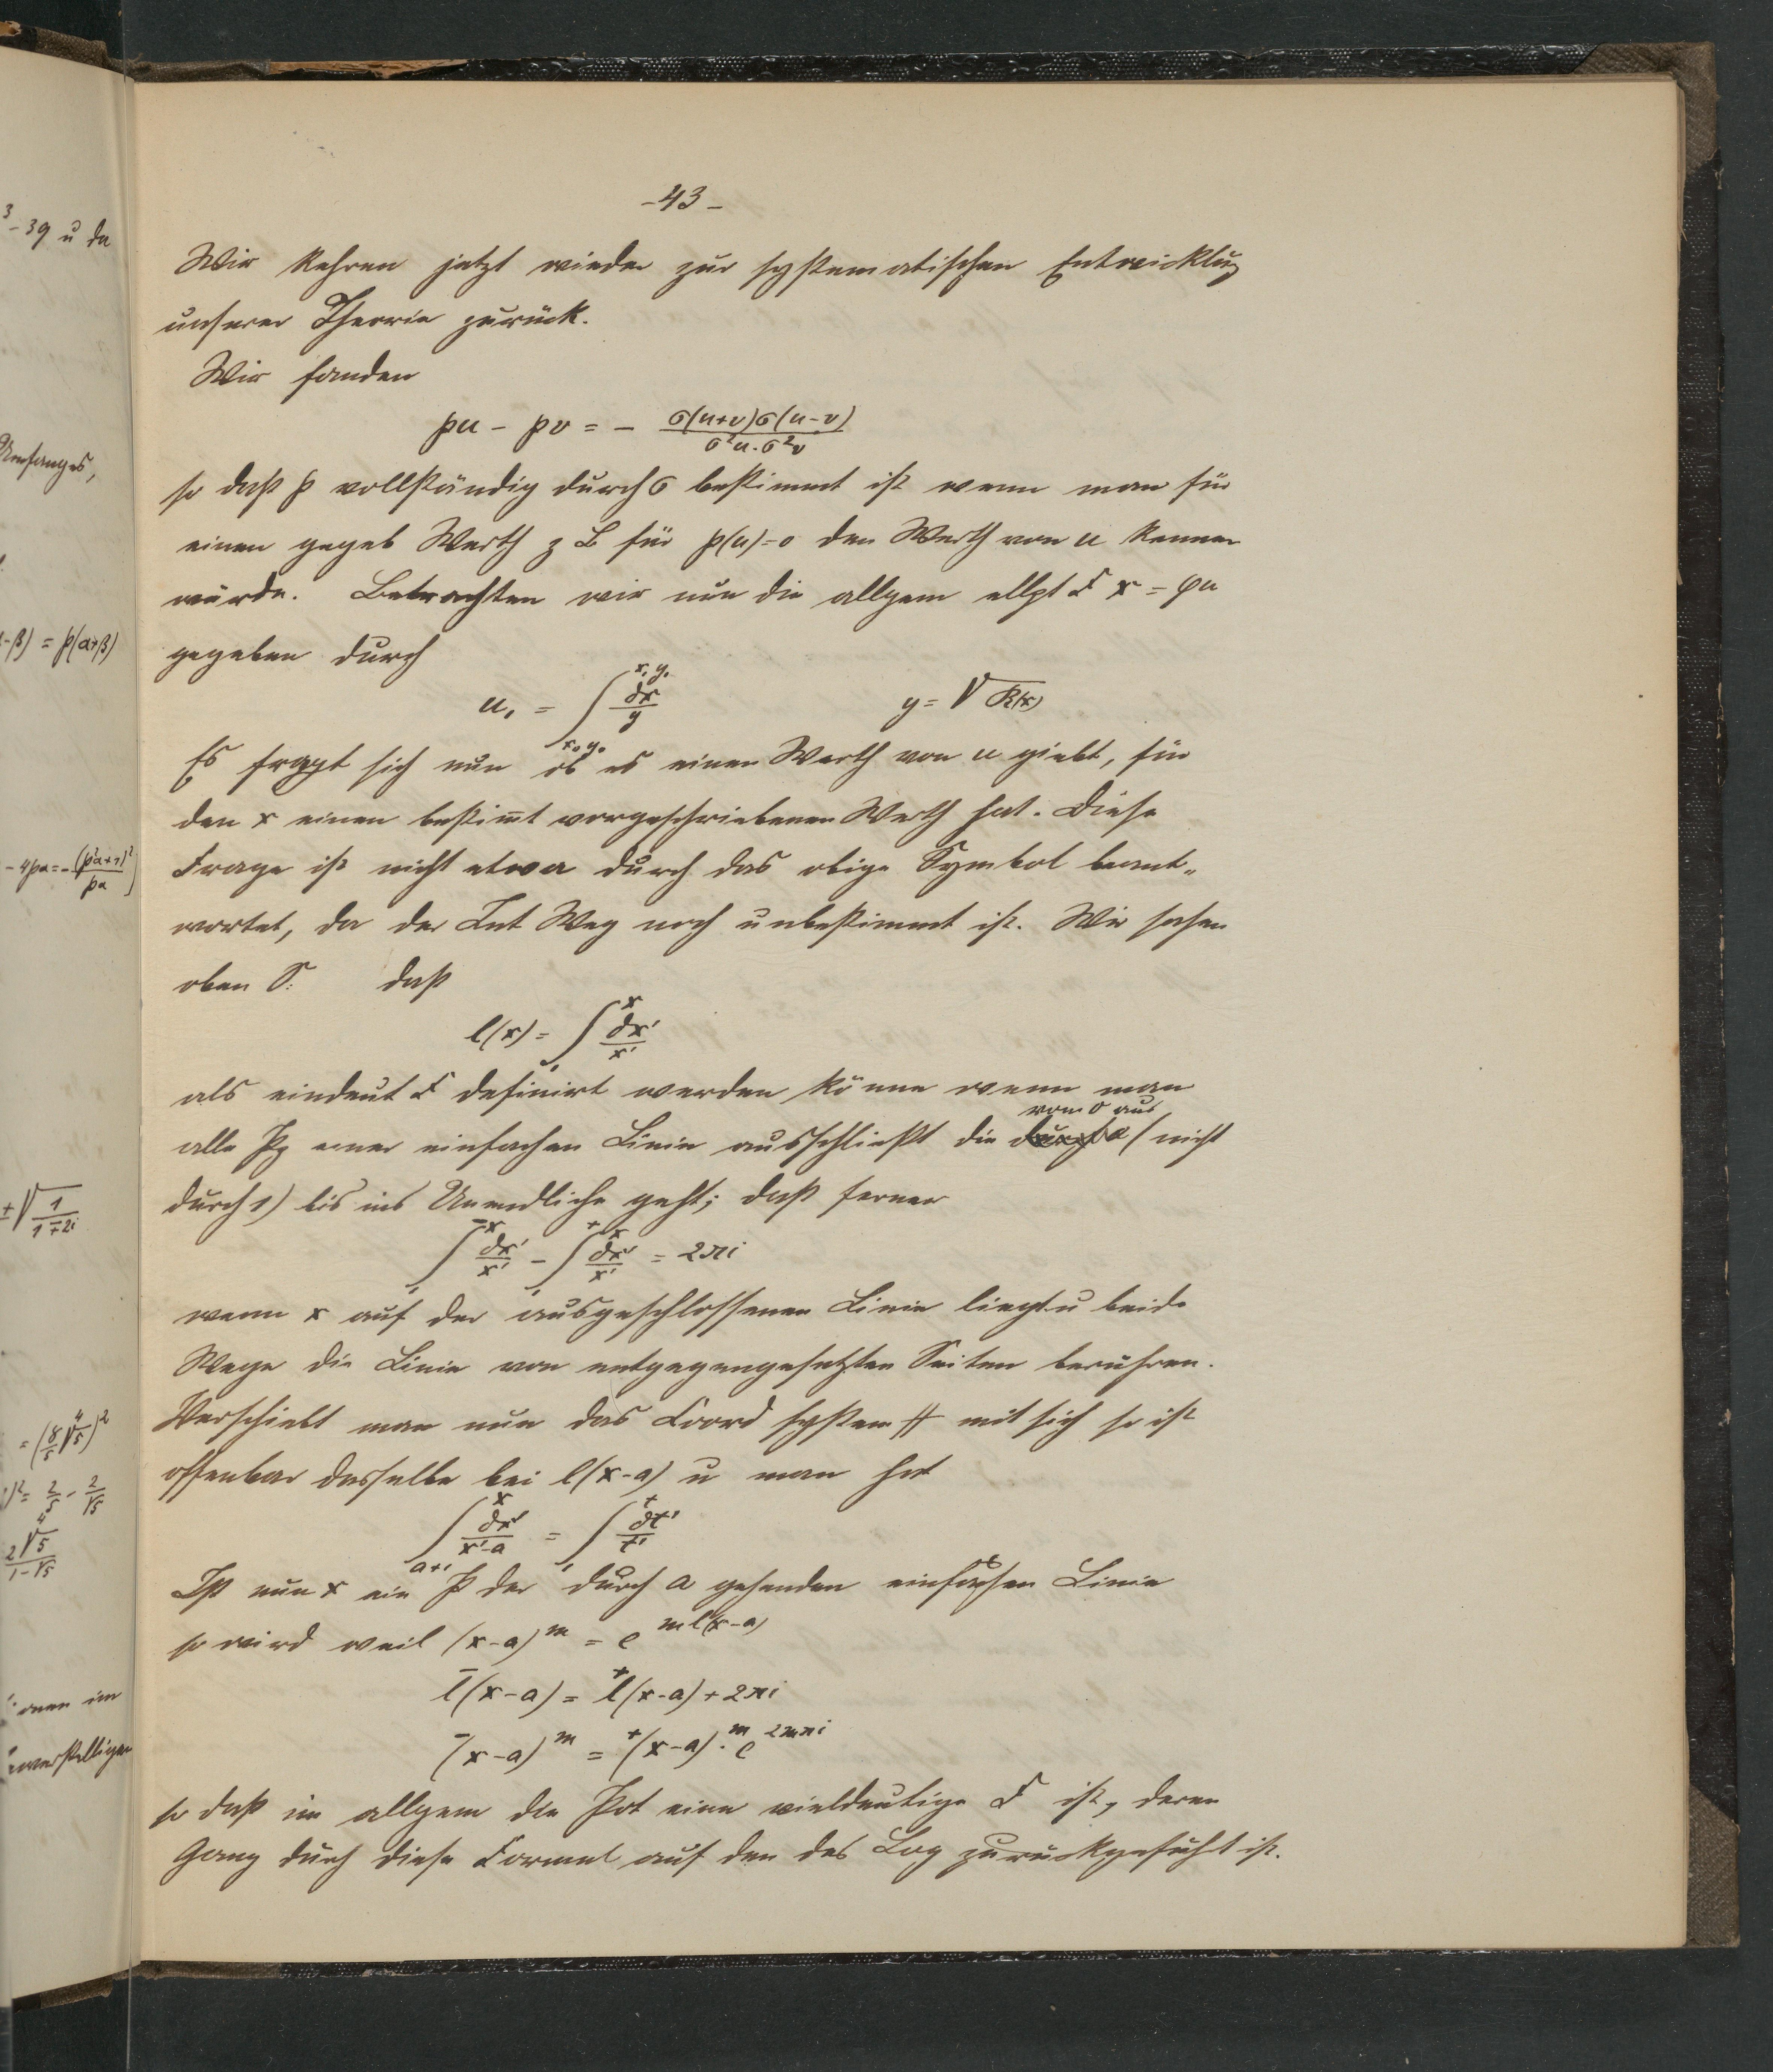 -43-
Wir kehren jetzt wieder zur systematischen Entwicklung
unserer Theorie zurück.
Wir fanden
pu - pv = - σ(u+v)σ(u-v) / σ²u·σ²v
so daß p vollständig durch σ bestimmt ist wenn man für
einen gegeb Werth z B für p(u)=0 den Werth von u kennen
würde. Betrachten wir nun die allgem ellpt F x = φu
gegeben durch
u₁ = ∫_{x₀y₀}^{x₁y₁} dx/y y = √R(x)
Es fragt sich nun ob es einen Werth von u giebt, für
den x einen bestim̄t vorgeschriebenen Werth hat. Diese
Frage ist nicht etwa durch das obige Symbol beant-
wortet, da der Int Weg noch unbestimmt ist. Wir sahen
oben S: daß
l(x) = ∫_1^x dx'/x'
als eindeut F definirt werden könne wenn man
von 0 aus
alle Pg einer einfachen Linie ausschließt die (nicht
durch 1) bis ins Unendliche geht; daß ferner
∫_1^{-x} dx'/x' - ∫_1^{+x} dx'/x' = 2πi
wenn x auf der ausgeschlossenen Linie liegt u beide
Wege die Linie von entgegengesetzten Seiten berühren.
Verschiebt man nun das Coord system # mit sich so ist
offenbar dasselbe bei l(x-a) u man hat
∫_{a+1}^x dx'/x'-a = ∫_1^t dt'/t'
Ist nun x ein P der durch a gehenden einfachen Linie
so wird weil (x-a)^m = e^{ml(x-a)}
l⁻(x-a) = l⁺(x-a) + 2πi
⁻(x-a)^m = ⁺(x-a)^m · e^{2mπi}
so daß im allgem die Pot eine vieldeutige F ist, deren
Gang durch diese Formel auf den des Log zurückgeführt ist.
³-39 u da
Umfanges,
-β) = p(α+β)
-4pα=-(p²α+1)²/pα)
±√1/1∓2i
)²= 2/5 - 2/√5